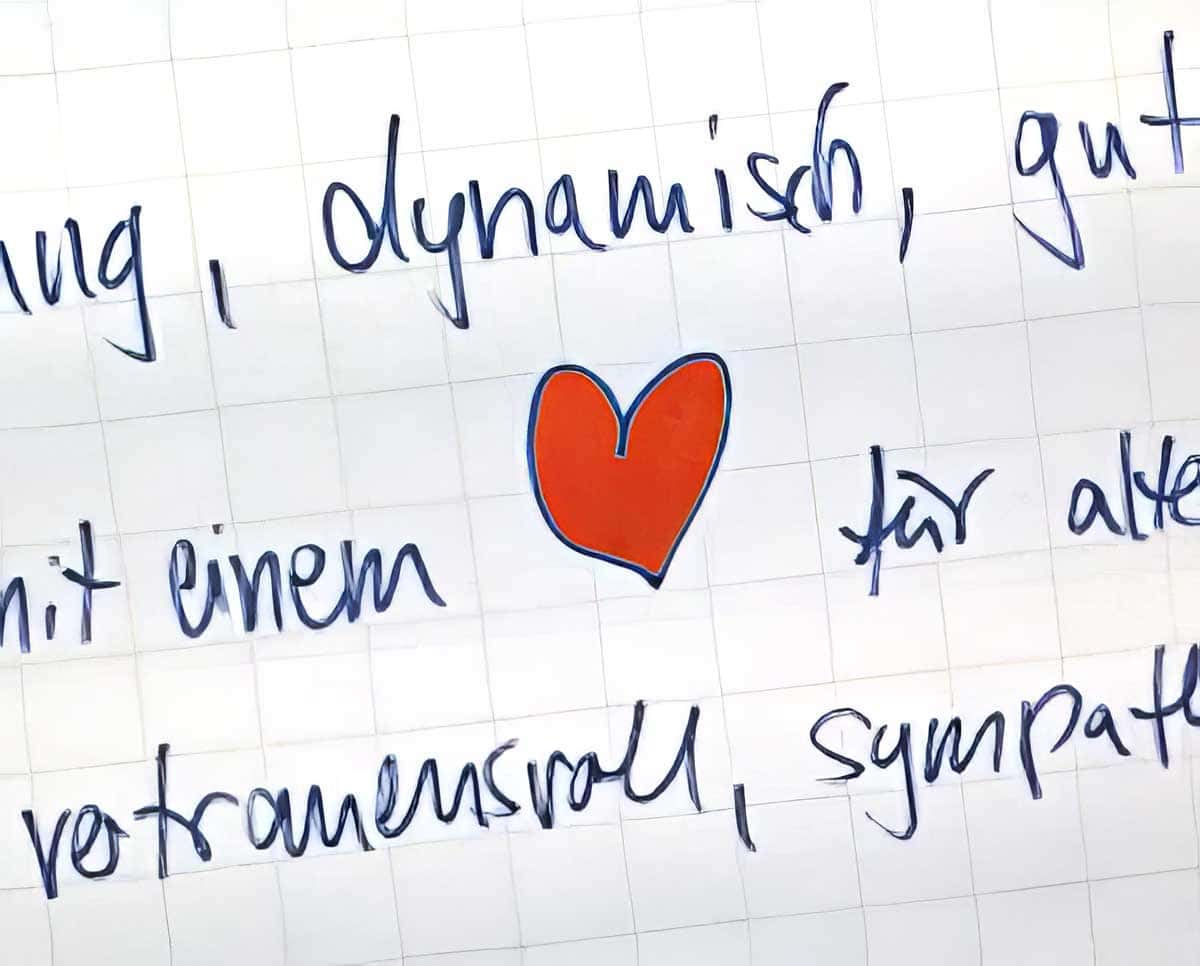 ung, dynamisch, gut
mit einem für alte
vertrauensvoll, sympath